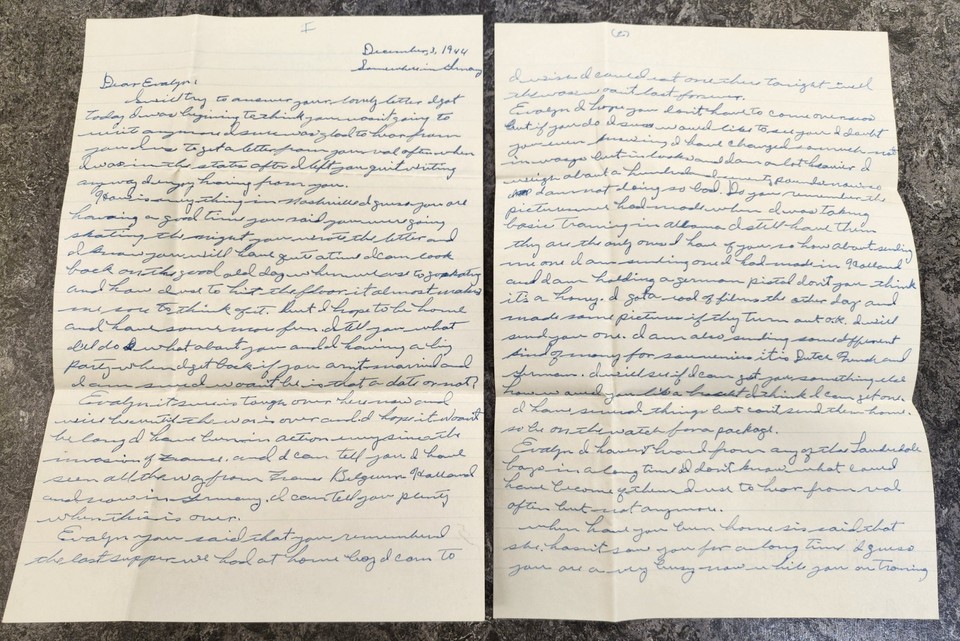 I
December 3, 1944
Somewhere in Germany
Dear Evelyn:
I will try to answer your lovely letter I got
today I was begining to think you wasn't going to
write anymore I sure was glad to hear from
you I use to get a letter from you real often when
I was in the states after I left you quit writing
anyway I enjoy hearing from you.
How is everything in Nashville I guess you are
having a good time you said you were going
skating the night you wrote the letter and
I know you will have quite a time I can look
back on the good old days when we use to go skating
and how I use to hit the floor, it almost makes
me sore to think of it. but I hope to be home
and have some more fun. I tell you what
lets do what about you and I having a big
Party when I get back if you aint married and
I am sure I wont be is that a date or not?
Evelyn it sure is tough over here now and
will be until the war is over and I hope it won't
be long I have been in action every since the
invasion of France. and I can tell you I have
seen all the way from France Belgium Holland
and now in Germany, I can tell you plenty
when this is over.
Evelyn you said that you remembered
the last supper we had at home boy I can to
(2)
I wish I could eat one there tonight well
the war wont last forever.
Evelyn I hope you don't have to come overseas
but if you do I sure would like to see you I doubt
your ever knowing I have changed so much not
in ways but in looks and I am a lot heavier I
weigh about a hundred and seventy pounds now so
I am not doing so bad. Do you remember the
pictures we had made when I was taking
basic Training in I still have them
they are the only ones I have of you so how about sending
me one I am sending one I had made in Holland
and I am holding a german pistol don't you think
it's a honey. I got a roll of films the other day and
made some pictures if they turn out o.k. I will
send you one. I am also sending some different
kind of money for souvenirs, it is Dutch French and
German. I will see if I can get you something else
how would you like a bracelet I think I can get one.
I have several things but can't send them home.
so be on the watch for a package.
Evelyn I haven't heard from any of the Lauderdale
boys in a long time I don't know what could
have become of them I use to hear from val
often but not anymore.
when have you been home sis said that
she hasn't saw you for a long time I guess
you are a very busy now while you are training